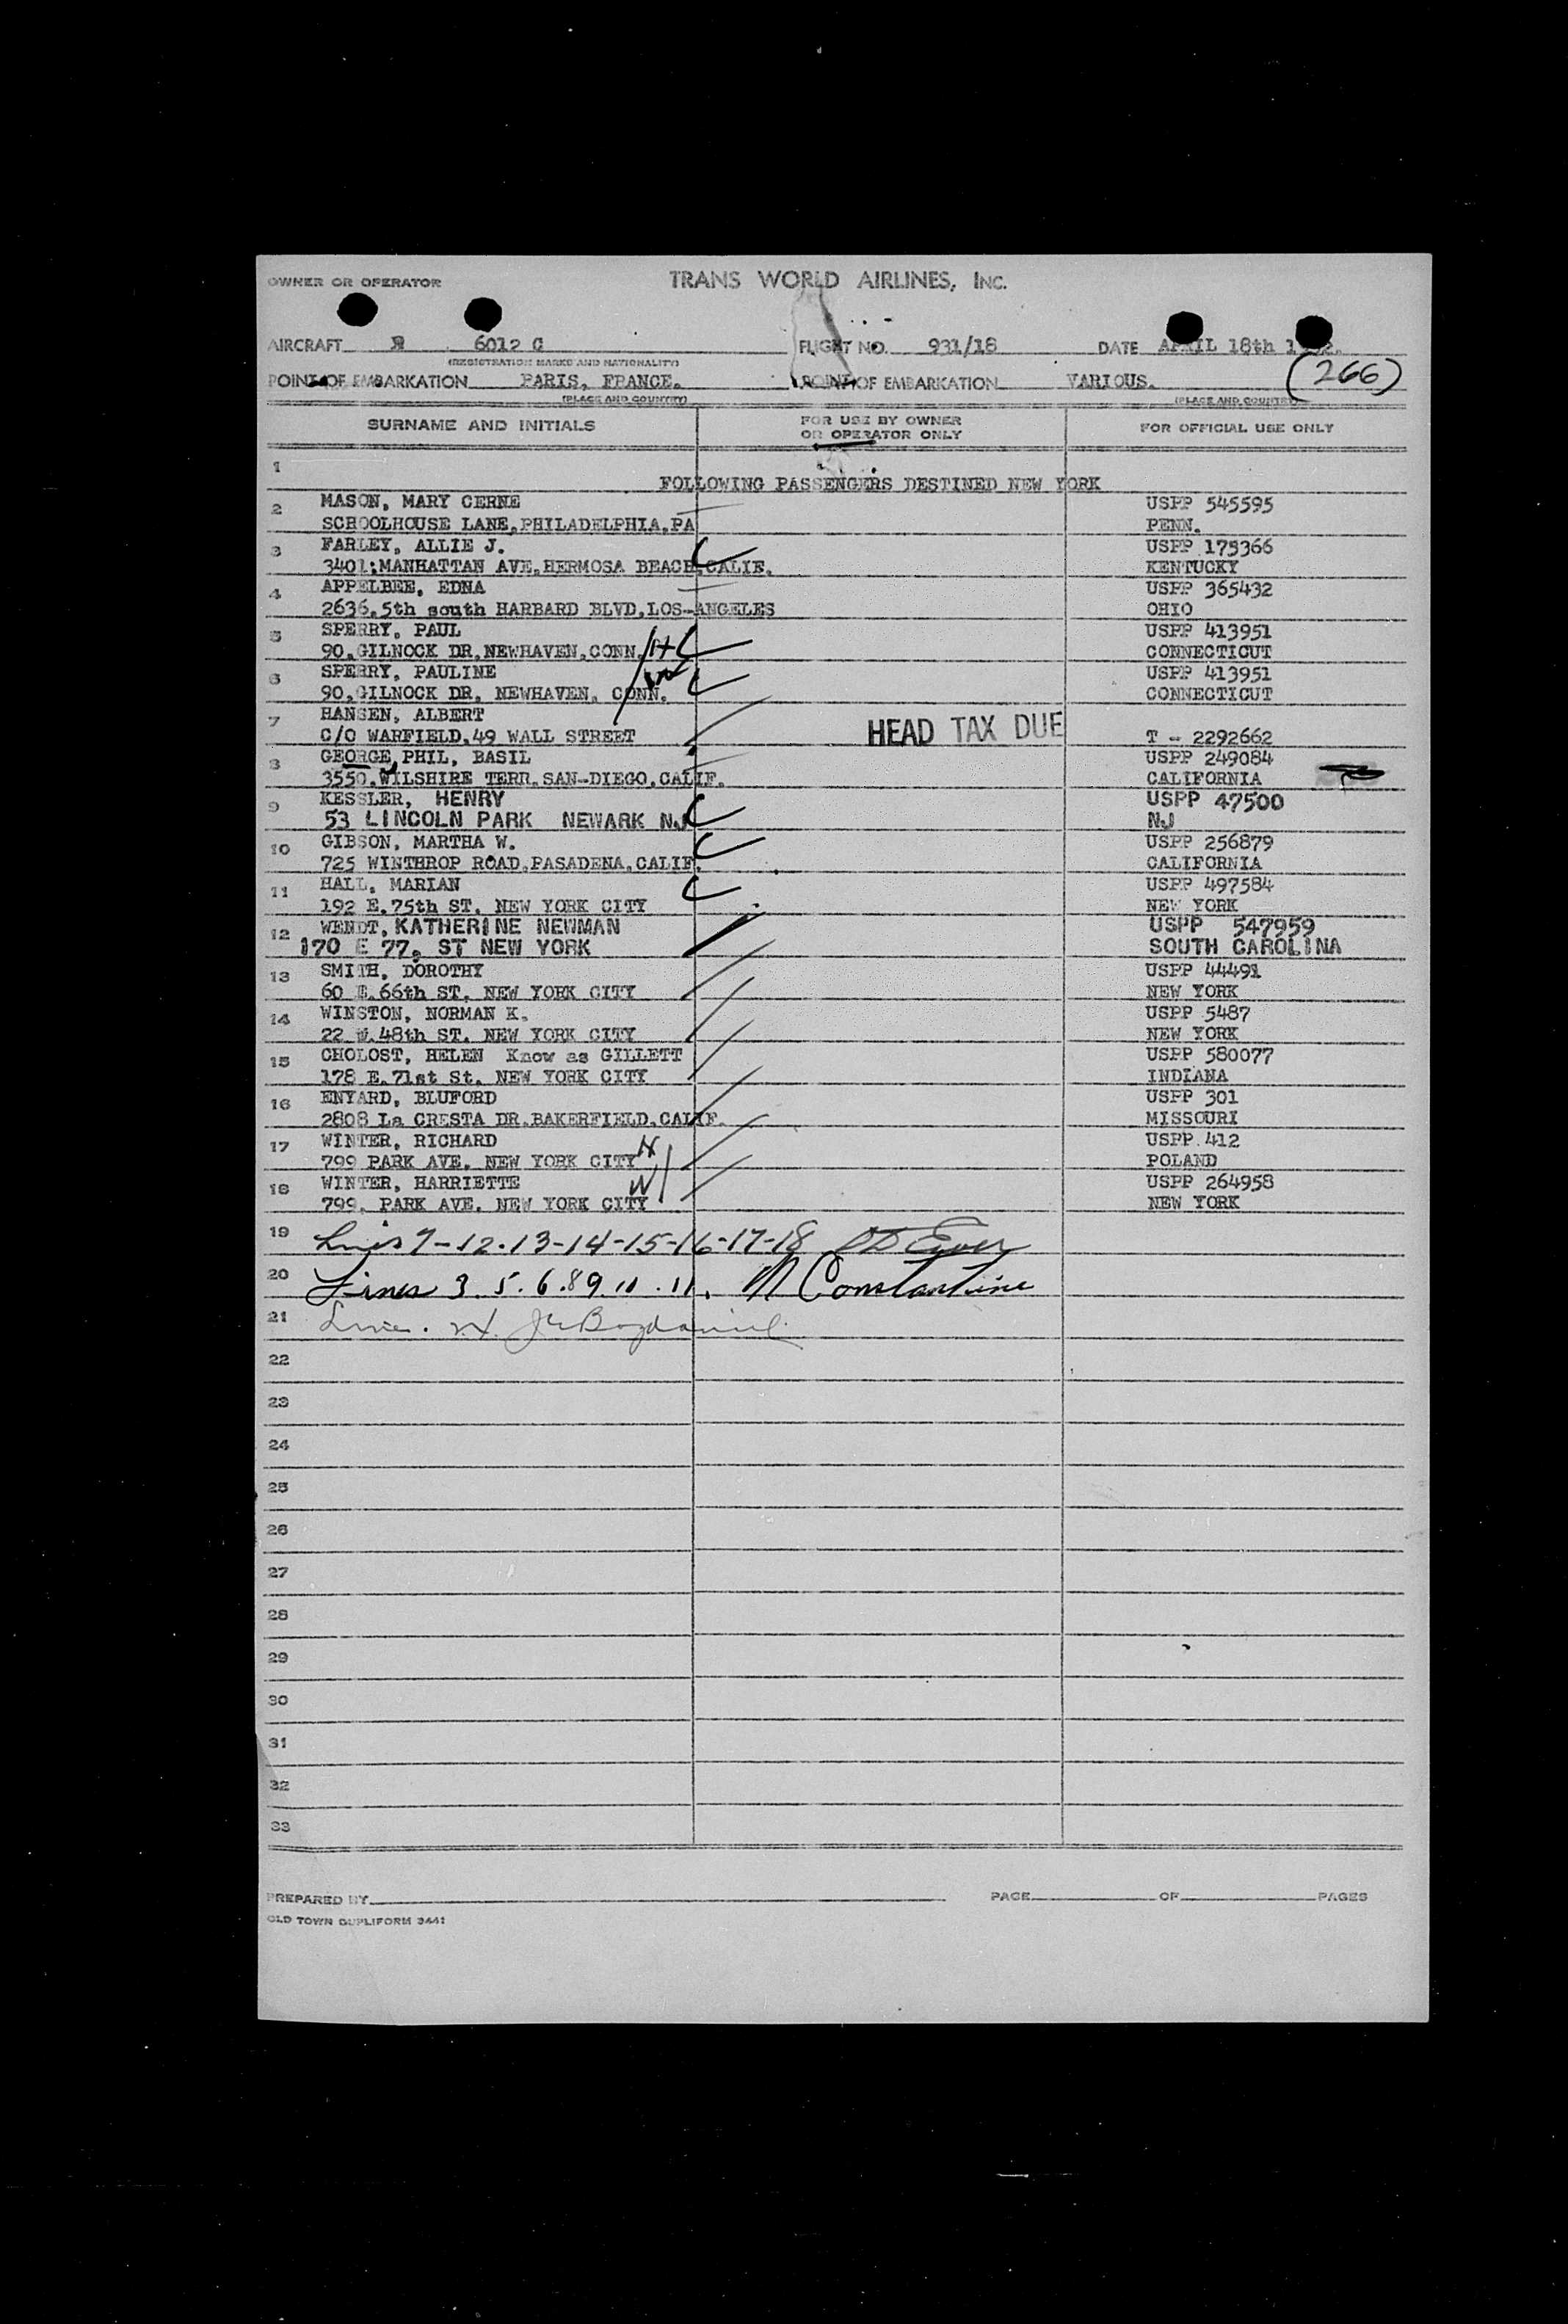 OWNER OR OPERATOR TRANS WORLD AIRLINES, INC.
AIRCRAFT 6012 C FLIGHT NO. 931/18 DATE APRIL 18th
(REGISTRATION MARKS AND NATIONALITY)
POINT OF EMBARKATION PARIS, FRANCE. POINT OF EMBARKATION VARIOUS. (266)
(PLACE AND COUNTRY) (PLACE AND COUNTRY)
SURNAME AND INITIALS FOR USE BY OWNER OR OPERATOR ONLY FOR OFFICIAL USE ONLY
1 FOLLOWING PASSENGERS DESTINED NEW YORK
2 MASON, MARY CERNE USPP 545595
SCHOOLHOUSE LANE,PHILADELPHIA,PA PENN.
3 FARLEY, ALLIE J. USPP 175366
3401:MANHATTAN AVE,HERMOSA BEACH,CALIF. KENTUCKY
4 APPELBEE, EDNA USPP 365432
2636,5th south HARBARD BLVD,LOS-ANGELES OHIO
5 SPERRY, PAUL USPP 413951
90,GILNOCK DR,NEWHAVEN,CONN. H CONNECTICUT
6 SPERRY, PAULINE USPP 413951
90,GILNOCK DR, NEWHAVEN, CONN. CONNECTICUT
7 HANSEN, ALBERT HEAD TAX DUE
C/O WARFIELD,49 WALL STREET T - 2292662
8 GEORGE,PHIL, BASIL USPP 249084
3550,WILSHIRE TERR,SAN-DIEGO,CALIF. CALIFORNIA
9 KESSLER, HENRY USPP 47500
53 LINCOLN PARK NEWARK NJ NJ
10 GIBSON, MARTHA W. USPP 256879
725 WINTHROP ROAD,PASADENA,CALIF. CALIFORNIA
11 HALL, MARIAN USPP 497584
192 E.75th ST, NEW YORK CITY NEW YORK
12 WENDT, KATHERINE NEWMAN USPP 547959
170 E 77, ST NEW YORK SOUTH CAROLINA
13 SMITH, DOROTHY USPP 44491
60 E.66th ST, NEW YORK CITY NEW YORK
14 WINSTON, NORMAN K. USPP 5487
22 W.48th ST. NEW YORK CITY NEW YORK
15 CHOLOST, HELEN Know as GILLETT USPP 580077
178 E.71st St. NEW YORK CITY INDIANA
16 ENYARD, BLUFORD USPP 301
2808 La CRESTA DR.BAKERFIELD,CALIF. MISSOURI
17 WINTER, RICHARD USPP 412
799 PARK AVE. NEW YORK CITY H POLAND
18 WINTER, HARRIETTE USPP 264958
799, PARK AVE. NEW YORK CITY W NEW YORK
19 Lines 7-12-13-14-15-16-17-18
20 Lines 3. 5. 6. 8 9. 11. M Constantine
21
22
23
24
25
26
27
28
29
30
31
32
33
PREPARED BY PAGE OF PAGES
OLD TOWN DUPLIFORM 3441